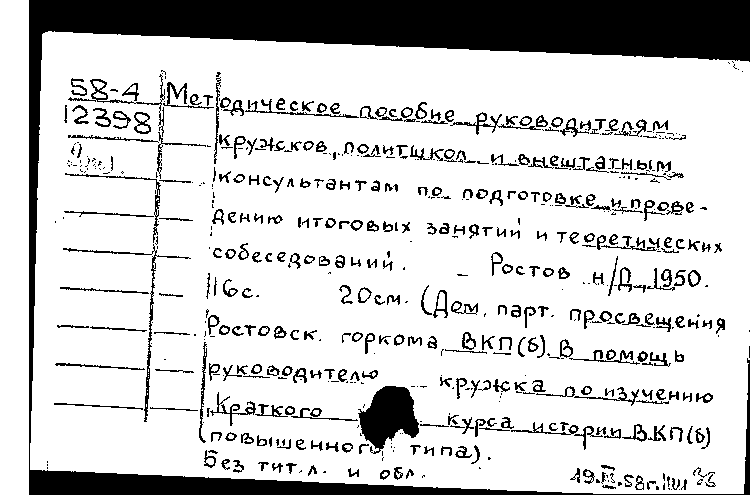 58-4
12398
Методическое пособие руководителям
кружков, политшкол и внештатным
консультантам по подготовке и прове-
дению итоговых занятий и теоретических
собеседований. – Ростов н/Д, 1950.
16с. 20см. (Дом парт. просвещения
Ростовск. горкома ВКП(б). В помощь
руководителю кружка по изучению
"Краткого курса истории ВКП(б)
(повышенного типа).
Без тит.л. и обл.
19.IX.58г.